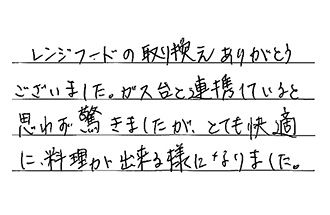 レンジフードの取り換えありがとう
ございました。ガス台と連携していると
思わず驚きましたが、とても快適
に、料理が出来る様になりました。